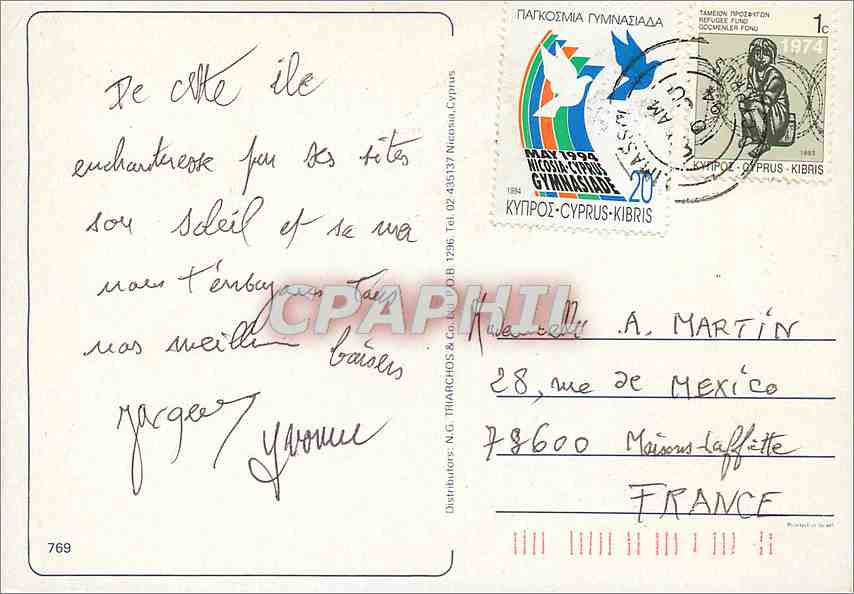 De cette ile
enchanteresse par ses sites
son soleil et sa
nous t'envoyons tous
nos meilleurs baisers
Yvonne
769
Distributors: N.G. TRIARCHOS & Co. Ltd. P.O.B. 1296. Tel. 02-435137 Nicosia, Cyprus
ΠΑΓΚΟΣΜΙΑ ΓΥΜΝΑΣΙΑΔΑ
MAY 1994
NICOSIA-CYPRUS
GYMNASIADE
1994
20
ΚΥΠΡΟΣ·CYPRUS·KIBRIS
ΤΑΜΕΙΟΝ ΠΡΟΣΦΥΓΩΝ
REFUGEE FUND
GÖÇMENLER FONU
1c
1974
ΚΥΠΡΟΣ·CYPRUS·KIBRIS
CPAPHIL
Mademoiselle A. MARTIN
28, rue de MEXICO
78600 Maisons-Laffitte
FRANCE